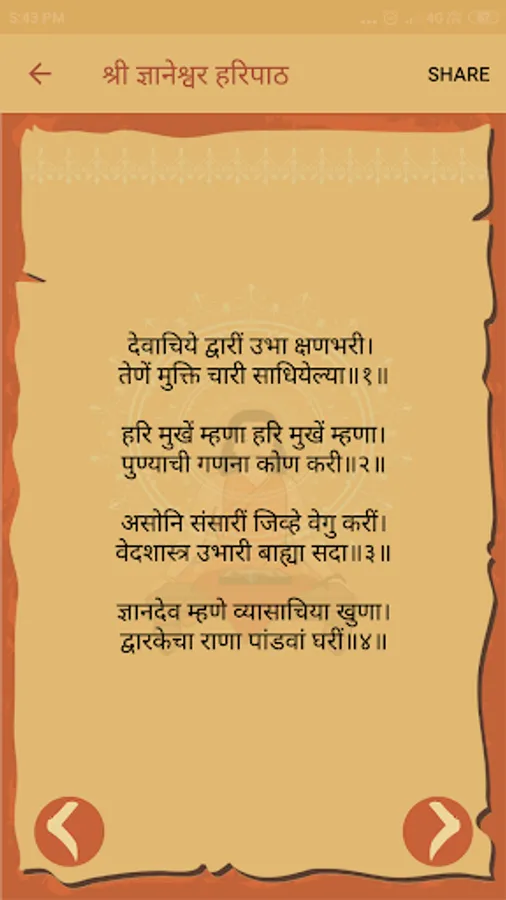 5:43 PM
4G
श्री ज्ञानेश्वर हरिपाठ
SHARE
देवाचिये द्वारीं उभा क्षणभरी।
तेणें मुक्ति चारी साधियेल्या॥१॥
हरि मुखें म्हणा हरि मुखें म्हणा।
पुण्याची गणना कोण करी॥२॥
असोनि संसारीं जिव्हे वेगु करीं।
वेदशास्त्र उभारी बाह्या सदा॥३॥
ज्ञानदेव म्हणे व्यासाचिया खुणा।
द्वारकेचा राणा पांडवां घरीं॥४॥